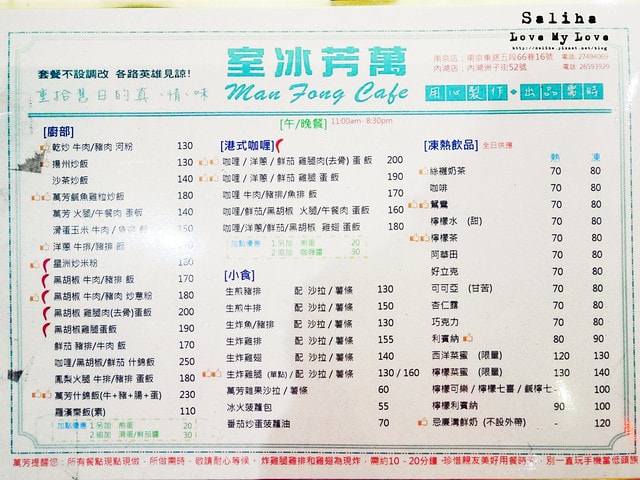 Saliha
Love My Love
http://saliha.pixnet.net/blog
套餐不設調改 各路英雄見諒!
重拾舊日的真、情、味
室冰芳萬
Man Fong Cafe
南京店:南京東路五段66巷16號 電話: 27494069
內湖店:內湖洲子街52號 電話: 26593929
用心製作・出品需時
[午/晚餐] 11:00am- 8:30pm
[廚部]
乾炒 牛肉/豬肉 河粉 130
揚州炒飯 130
沙茶炒飯 140
萬芳鹹魚雞粒炒飯 180
萬芳 火腿/午餐肉 蛋飯 140
滑蛋玉米 牛肉/魚 飯 150
洋蔥 牛排/豬排 飯 170
星洲炒米粉 150
黑胡椒 牛肉/豬排 飯 170
黑胡椒 牛肉/豬肉 炒意粉 180
黑胡椒 雞腿肉(去骨)蛋飯 200
黑胡椒雞腿蛋飯 190
鮮茄 豬排/牛肉 飯 170
咖哩/黑胡椒/鮮茄 什錦飯 250
鳳梨火腿 牛排/豬排 蛋飯 180
萬芳什錦飯(牛+豬+腸+蛋) 230
羅漢齋飯(素) 110
加點優惠 1 另加 煎蛋 20
2 追加 滑蛋/鮮茄醬 30
[港式咖喱]
咖哩 / 洋蔥 / 鮮茄 雞腿肉(去骨) 蛋飯 200
咖哩 / 洋蔥 / 鮮茄 雞腿 蛋飯 190
咖哩 牛肉/豬排/魚排 飯 170
咖哩/鮮茄/黑胡椒 火腿/午餐肉 蛋飯 160
咖哩/洋蔥/鮮茄/黑胡椒 雞翅 蛋飯 180
加點優惠 1 另加 煎蛋 20
2 追加 咖喱醬 30
[小食]
生煎豬排 配 沙拉 / 薯條 130
生煎牛排 配 沙拉 / 薯條 150
生炸魚/豬排 配 沙拉 / 薯條 130
生炸雞排 配 沙拉 / 薯條 155
生炸雞翅 配 沙拉 / 薯條 140
生炸雞腿 (單點) / 配 沙拉 / 薯條 130 / 160
萬芳雜果沙拉 / 薯條 60
冰火菠蘿包 55
番茄炒蛋菠蘿油 70
[凍熱飲品] 全日供應
熱 凍
絲襪奶茶 70 80
咖啡 70 80
鴛鴦 70 80
檸檬水 (甜) 70 80
檸檬茶 70 80
阿華田 70 80
好立克 70 80
可可亞 (甘苦) 70 80
杏仁露 70 80
巧克力 70 80
利賓納 80 90
西洋菜蜜 (限量) 120 130
檸檬菜蜜 (限量) 130 140
檸檬可樂 / 檸檬七喜 / 鹹檸七 - 100
檸檬利賓納 90 100
忌廉溝鮮奶 (不設外帶) - 120
萬芳提醒您:所有餐點現點現做,所做需時,敬請耐心等候、炸雞腿雞排和雞翅為現炸,需約10 - 20分鐘 -珍惜親友美好用餐時 別一直玩手機當低頭族